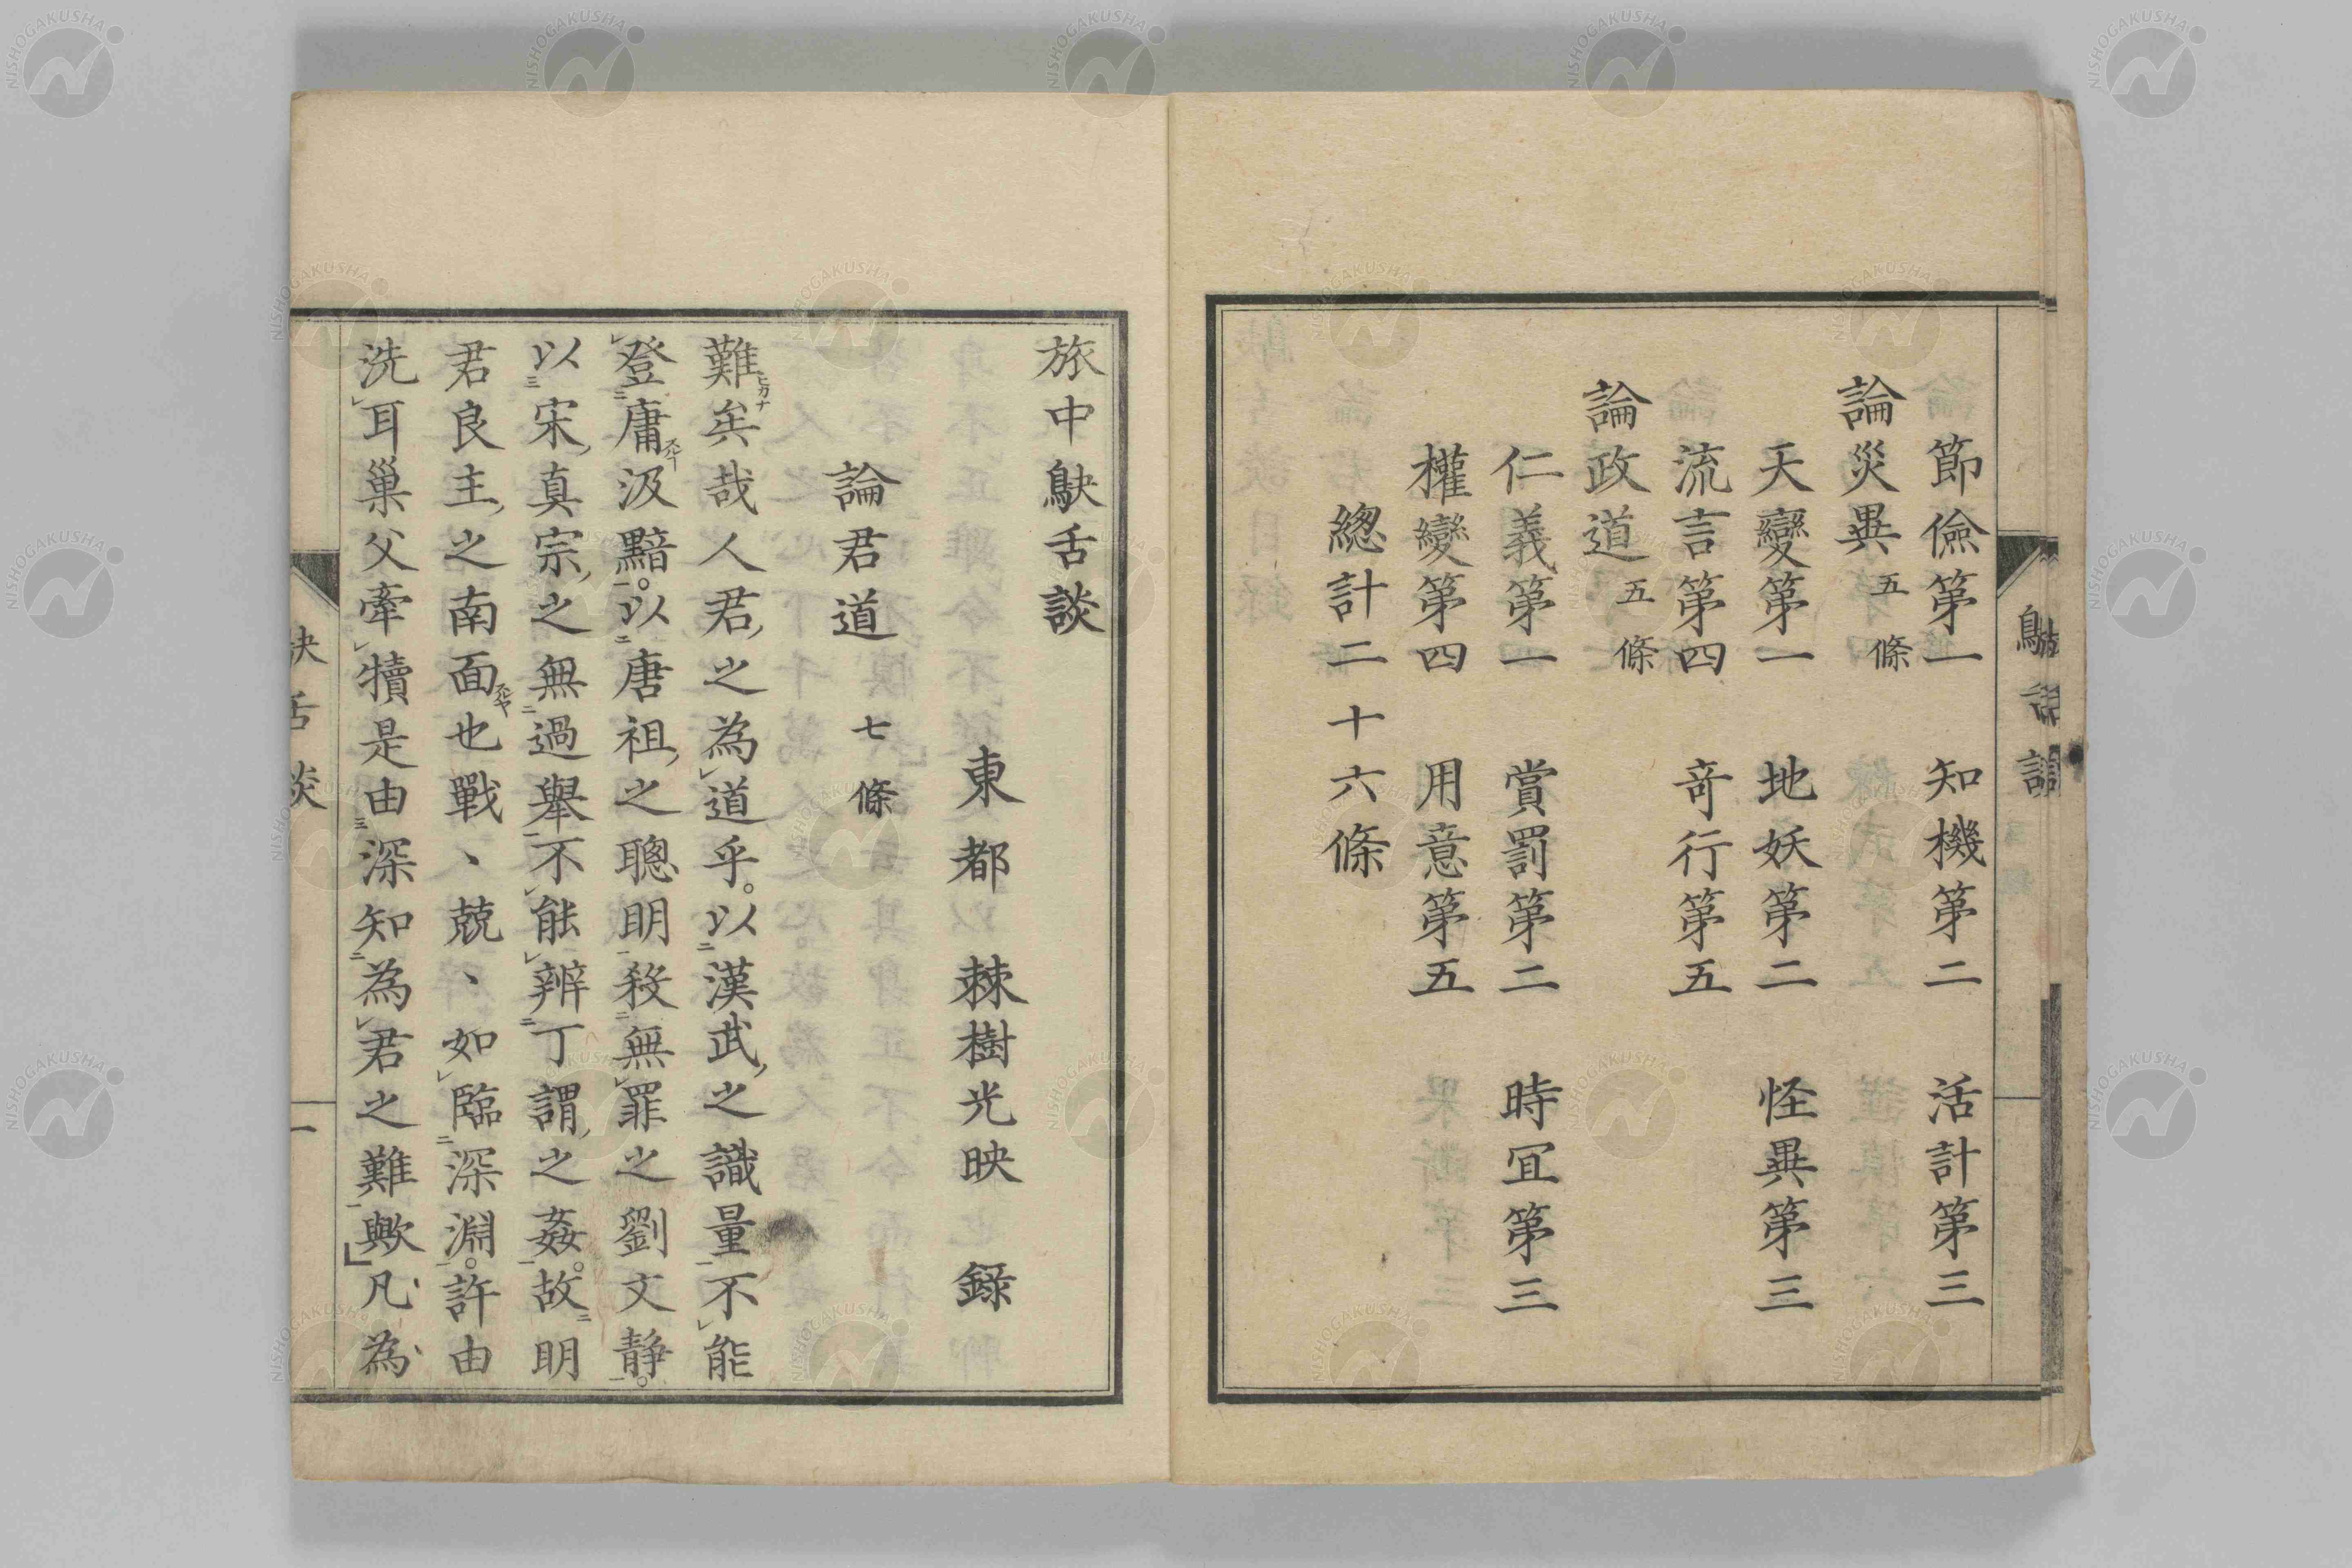 節儉第一 知機第二 活計第三
論災異 五條
天變第一 地妖第二 怪異第三
流言第四 奇行第五
論政道 五條
仁義第一 賞罰第二 時冝第三
權變第四 用意第五
總計二十六條
旅中鴃舌談
東都 棘樹光映 錄
論君道 七條
難矣哉人君之為道乎。以漢武之識量不能
登庸汲黯。以唐祖之聰明殺無罪之劉文靜。
以宋真宗之無過舉不能辨丁謂之姦。故明
君良主之南面也戰丶兢丶如臨深淵。許由
洗耳巢父牽犢是由深知為君之難歟凡為
NISHOGAKUSHA